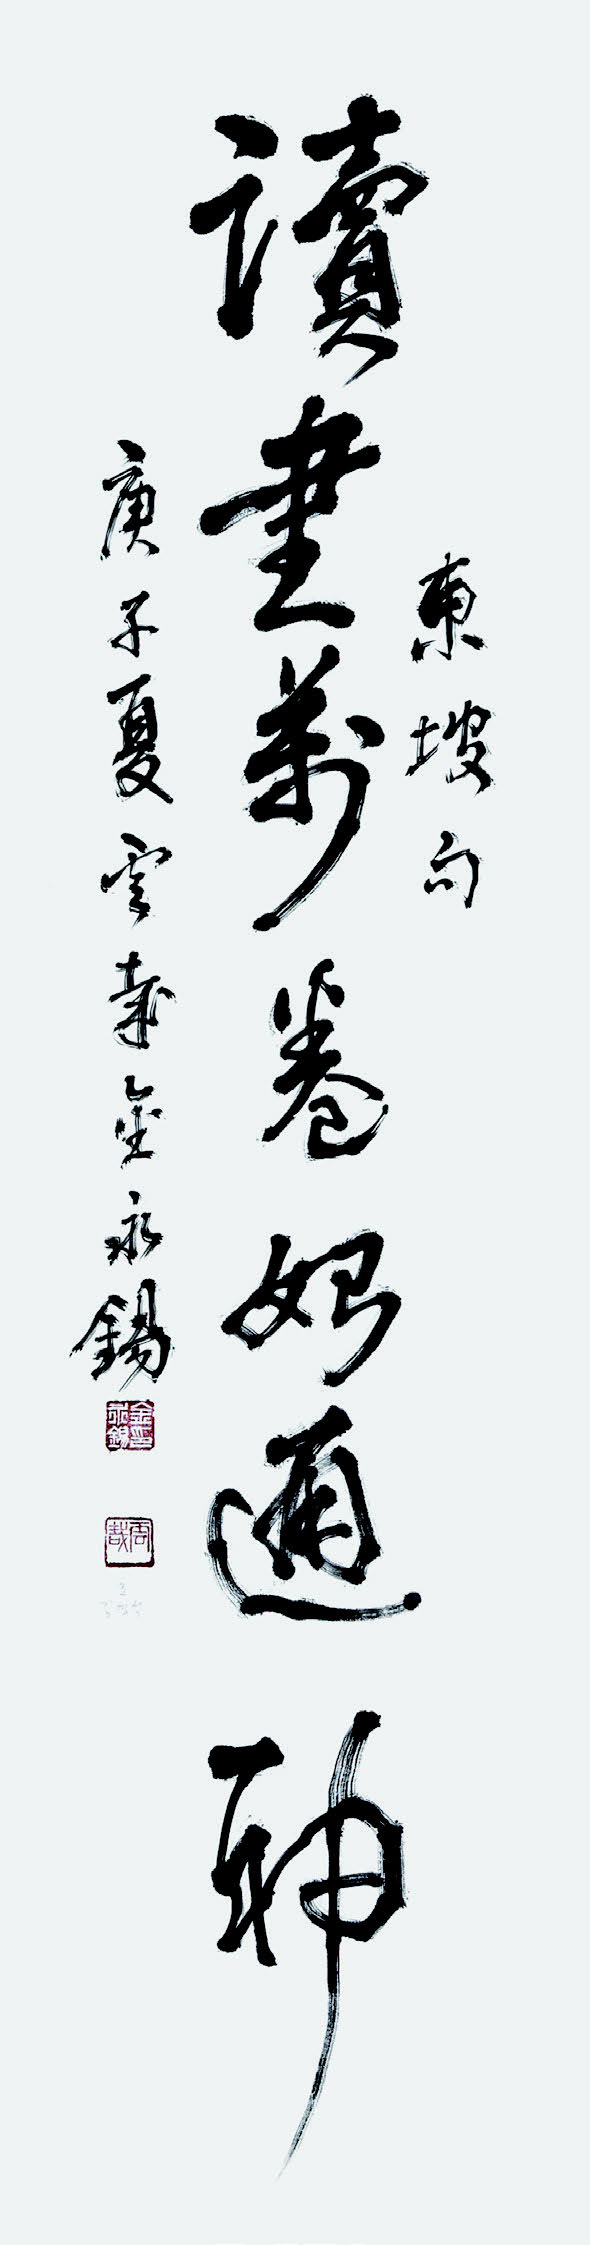 東坡句
讀書萬卷始通神
庚子夏雲哉金永錫
金永錫印
雲哉